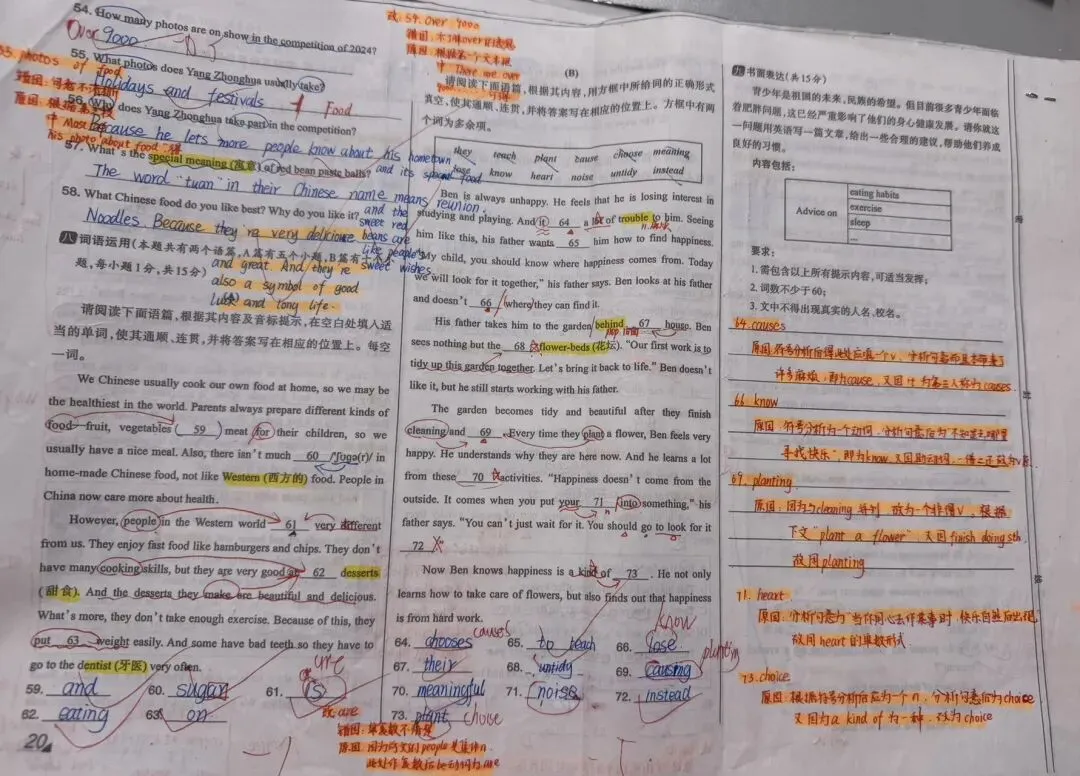 54. How many photos are on show in the competition of 2024?
Over 9000
55. What photos does Yang Zhonghua usually take?
Holidays and festivals
Food
56. Why does Yang Zhonghua take part in the competition?
Because he lets more people know about his hometown
and its food
57. What's the special meaning (寓意) of red bean paste balls?
The word "tuan" in their Chinese name means reunion.
and the sweet red beans are like people's sweet wishes
58. What Chinese food do you like best? Why do you like it?
Noodles. Because they're very delicious
and great. And they're
also a symbol of good
luck and long life.
八 词语运用(本题共有两个语篇,A篇有五个小题,B篇有十个小题,每小题1分,共15分)
请阅读下面语篇,根据其内容及音标提示,在空白处填入适
当的单词,使其通顺、连贯,并将答案写在相应的位置上。每空
一词。
We Chinese usually cook our own food at home, so we may be
the healthiest in the world. Parents always prepare different kinds of
food—fruit, vegetables 59 meat for their children, so we
usually have a nice meal. Also, there isn't much 60 /ˈʃʊɡə(r)/ in
home-made Chinese food, not like Western (西方的) food. People in
China now care more about health.
However, people in the Western world 61 very different
from us. They enjoy fast food like hamburgers and chips. They don't
have many cooking skills, but they are very good at 62 desserts
(甜食). And the desserts they make are beautiful and delicious.
What's more, they don't take enough exercise. Because of this, they
put 63 weight easily. And some have bad teeth so they have to
go to the dentist (牙医) very often.
59. and 60. sugar 61. is are
62. eating 63. on
改: are
错因: 单复数不清楚
原因: 因为前文的people是集体n.
此处作复数后be动词为are
20
改: 54. Over 9000
(B)
请阅读下面语篇,根据其内容,用方框中所给词的正确形式
填空,使其通顺、连贯,并将答案写在相应的位置上。方框中有两
个词为多余项。
they teach plant cause choose meaning
lose know heart noise untidy instead
Ben is always unhappy. He feels that he is losing interest in
studying and playing. And it 64 a lot of trouble to him. Seeing
him like this, his father wants 65 him how to find happiness.
"My child, you should know where happiness comes from. Today
we will look for it together," his father says. Ben looks at his father
and doesn't 66 where they can find it.
His father takes him to the garden behind 67 house. Ben
sees nothing but the 68 flower-beds (花坛). "Our first work is to
tidy up this garden together. Let's bring it back to life." Ben doesn't
like it, but he still starts working with his father.
The garden becomes tidy and beautiful after they finish
cleaning and 69 . Every time they plant a flower, Ben feels very
happy. He understands why they are here now. And he learns a lot
from these 70 activities. "Happiness doesn't come from the
outside. It comes when you put your 71 into something," his
father says. "You can't just wait for it. You should go to look for it
72 ."
Now Ben knows happiness is a kind of 73 . He not only
learns how to take care of flowers, but also finds out that happiness
is from hard work.
64. chooses causes 65. to teach 66. lose know
67. their 68. untidy 69. causing planting
70. meaningful 71. noise 72. instead
73. plant choice
九 书面表达(共15分)
青少年是祖国的未来,民族的希望。但目前很多青少年面临
着肥胖问题,这已经严重影响了他们的身心健康发展。请你就这
一问题用英语写一篇文章,给出一些合理的建议,帮助他们养成
良好的习惯。
内容包括:
Advice on
eating habits
exercise
sleep
...
要求:
1. 需包含以上所有提示内容,可适当发挥;
2. 词数不少于60;
3. 文中不得出现真实的人名、校名。
64. causes
原因: 符号分析后得此处应填一个v. 分析句意
许多麻烦, 即为cause, 又因it为第三人称为causes.
66. know
原因: 符号分析为一个动词. 分析句意后为"不知
寻找快乐" 即为know
69. planting
原因: 因为与cleaning并列 故为一个非谓V. 根据
下文"plant a flower" 又因finish doing sth.
故用planting
71. heart
原因: 分析句意为"当你用心去做某事时, 快乐自然后出现"
故用heart的单数形式
73. choice
原因: 根据符号分析后应为一个n. 分析句意后为choice
又因为a kind of 为一种. 改为choice